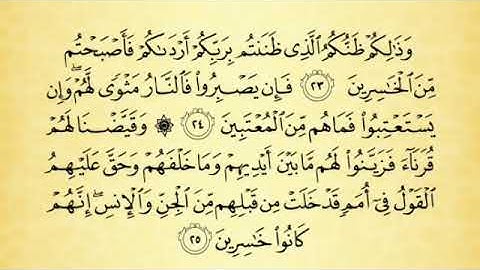 وَذَٰلِكُمْ ظَنُّكُمُ ٱلَّذِى ظَنَنتُم بِرَبِّكُمْ أَرْدَىٰكُمْ فَأَصْبَحْتُم
مِّنَ ٱلْخَٰسِرِينَ ٢٣ فَإِن يَصْبِرُوا۟ فَٱلنَّارُ مَثْوًى لَّهُمْ ۖ وَإِن
يَسْتَعْتِبُوا۟ فَمَا هُم مِّنَ ٱلْمُعْتَبِينَ ٢٤ ۞ وَقَيَّضْنَا لَهُمْ
قُرَنَآءَ فَزَيَّنُوا۟ لَهُم مَّا بَيْنَ أَيْدِيهِمْ وَمَا خَلْفَهُمْ وَحَقَّ عَلَيْهِمُ
ٱلْقَوْلُ فِىٓ أُمَمٍ قَدْ خَلَتْ مِن قَبْلِهِم مِّنَ ٱلْجِنِّ وَٱلْإِنسِ ۖ إِنَّهُمْ
كَانُوا۟ خَٰسِرِينَ ٢٥